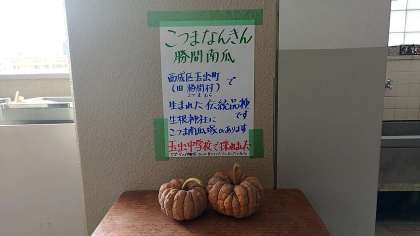 こつまなんきん
勝間南瓜
西成区玉出町
(旧 勝間村)で
こつまむら
生まれた伝統品種
です
生根神社に
こつま南瓜塚があります
玉出中学校で採れました